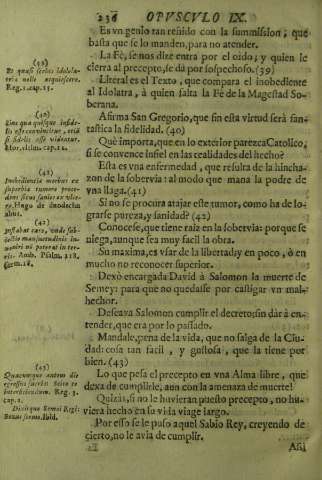 236 OPVSCVLO IX.
Es vn genio tan reñido con la summission, que
basta que se lo manden, para no atender.
La Fè, se nos dize entra por el oido; y quien le
cierra al precepto, se dà por sospechoso. (39)
Literal es el Texto, que compara el inobediente
al Idolatra, à quien falta la Fè de la Magestad So-
berana.
Afirma San Gregorio, que sin esta virtud serà fan-
tastica la fidelidad. (40)
Què importa, que en lo exterior parezca Catolico,
si se convence infiel en las realidades del hecho?
Esta es vna enfermedad, que resulta de la hincha-
zon de la sobervia: al modo que mana la podre de
vna llaga. (41)
Si no se procura atajar este tumor, como ha de lo-
grarse pureza, y sanidad? (42)
Conocese, que tiene raiz en la sobervia: porque se
niega, aunque sea muy facil la obra.
Su maxima, es vsar de la libertad: y en poco, ò en
mucho no reconocer superior.
Dexò encargada David à Salomon la muerte de
Semey: para que no quedasse por castigar vn mal-
hechor.
Deseava Salomon cumplir el decreto sin dàr à en-
tender, que era por lo passado.
Mandale, pena de la vida, que no salga de la Ciu-
dad: cosa tan facil, y gustosa, que la tiene por
bien. (43)
Lo que pesa el precepto en vna Alma libre, que
dexa de cumplirle, aun con la amenaza de muerte!
Quizàs, si no le huvieran puesto precepto, no hu-
viera hecho en su vida viage largo.
Por esso se le puso aquel Sabio Rey, creyendo de
cierto, no le avia de cumplir.
Assi
(39)
Et quasi scelus idolola-
triæ nolle acquiescere.
Reg. 1. cap. 15.
(40)
(41)
Inobedientia morbus ex
superbia tumore proce-
dens
(42)
Psalm. 118.
(43)
Quacumque autem die
egressus fueris
interficiendum. Reg. 3.
cap. 2.
Dixitque Semei Regi:
Bonus sermo. Ibid.